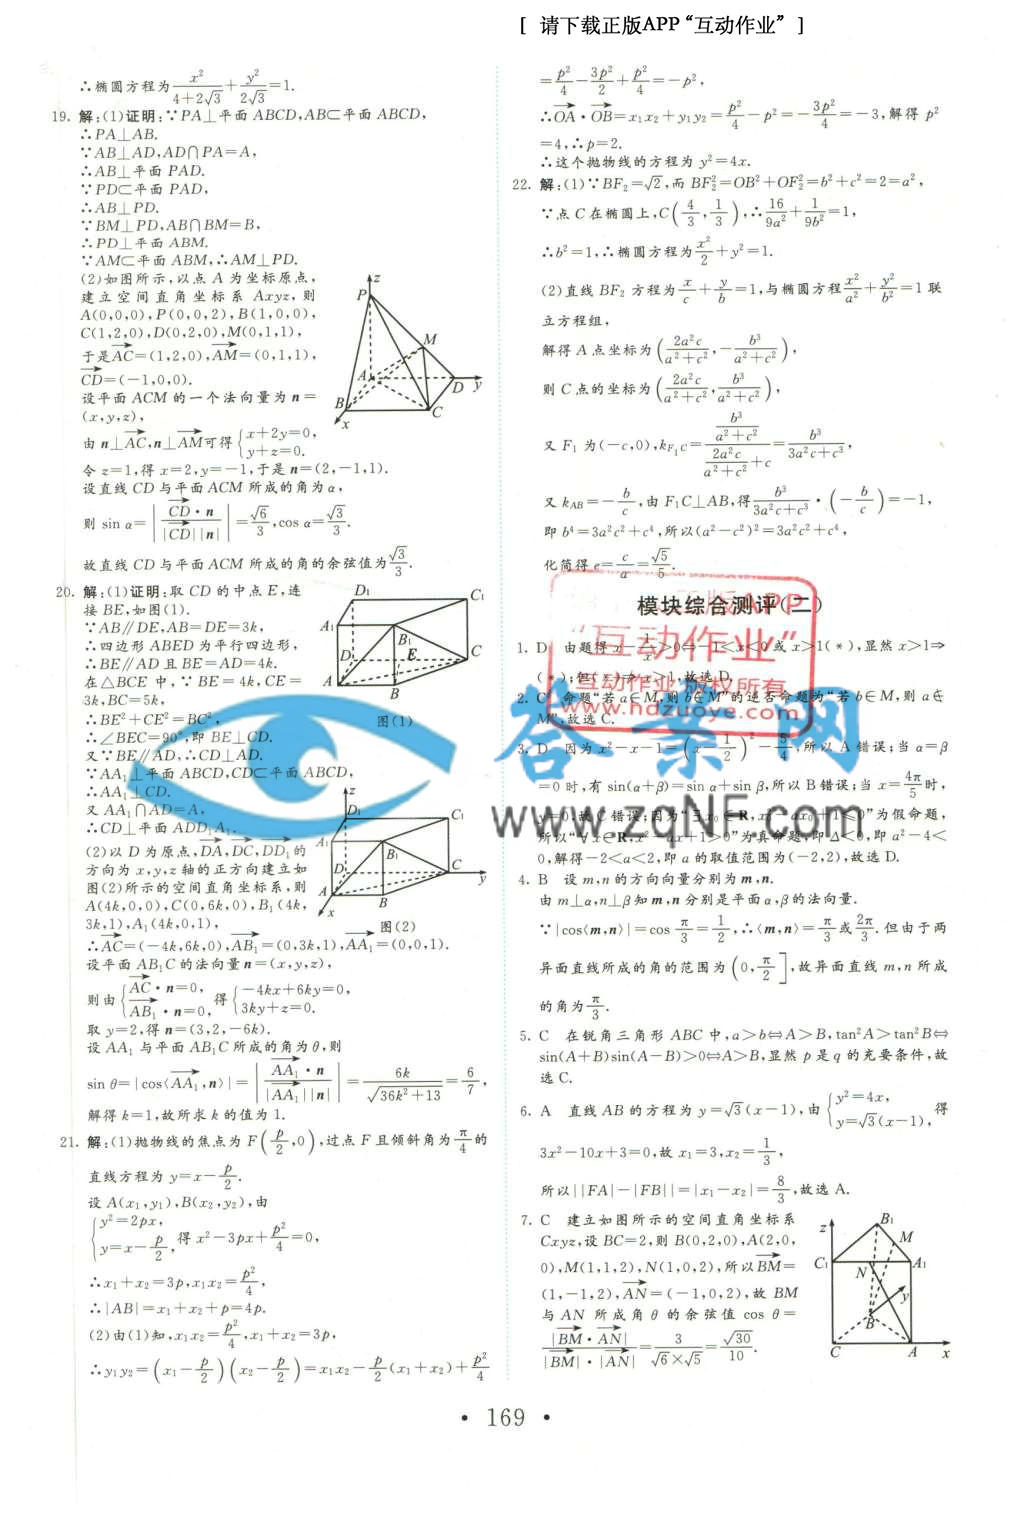 [ 请下载正版APP“互动作业” ]
∴椭圆方程为x²/(4+2√3)+y²/(2√3)=1.
19. 解:(1)证明:∵PA⊥平面 ABCD,AB⊂平面 ABCD,
∴PA⊥AB.
∵AB⊥AD,AD∩PA=A,
∴AB⊥平面 PAD.
∵PD⊂平面 PAD,
∴AB⊥PD.
∵BM⊥PD,AB∩BM=B,
∴PD⊥平面 ABM.
∵AM⊂平面 ABM,∴AM⊥PD.
(2)如图所示,以点 A 为坐标原点,
建立空间直角坐标系 Axyz,则
A(0,0,0),P(0,0,2),B(1,0,0),
C(1,2,0),D(0,2,0),M(0,1,1),
于是AC=(1,2,0),AM=(0,1,1),
CD=(-1,0,0).
设平面 ACM 的一个法向量为 n=
(x,y,z),
由 n⊥AC,n⊥AM可得{x+2y=0,
y+z=0.
令 z=1,得 x=2,y=-1,于是 n=(2,-1,1).
设直线 CD 与平面 ACM 所成的角为 α,
则 sin α=|CD·n/(|CD||n|)|=√6/3,cos α=√3/3.
故直线 CD 与平面 ACM 所成的角的余弦值为√3/3.
P z M A D y B C x
20. 解:(1)证明:取 CD 的中点 E,连
接 BE,如图(1).
∵AB∥DE,AB=DE=3k,
∴四边形 ABED 为平行四边形,
∴BE∥AD 且 BE=AD=4k.
在△BCE 中,∵BE=4k,CE=
3k,BC=5k,
∴BE²+CE²=BC²,
∴∠BEC=90°,即 BE⊥CD.
又∵BE∥AD,∴CD⊥AD.
∵AA₁⊥平面 ABCD,CD⊂平面 ABCD,
∴AA₁⊥CD.
又 AA₁∩AD=A,
∴CD⊥平面 ADD₁A₁.
D₁ C₁ A₁ B₁ D E C A B
图(1)
(2)以 D 为原点,DA,DC,DD₁的
方向为 x,y,z 轴的正方向建立如
图(2)所示的空间直角坐标系,则
A(4k,0,0),C(0,6k,0),B₁(4k,
3k,1),A₁(4k,0,1),
z D₁ C₁ A₁ B₁ D C y A B x
图(2)
∴AC=(-4k,6k,0),AB₁=(0,3k,1),AA₁=(0,0,1).
设平面 AB₁C 的法向量 n=(x,y,z),
则由{AC·n=0, 得{-4kx+6ky=0,
AB₁·n=0, 3ky+z=0.
取 y=2,得 n=(3,2,-6k).
设 AA₁ 与平面 AB₁C 所成的角为 θ,则
sin θ=|cos⟨AA₁,n⟩|=|AA₁·n/(|AA₁||n|)|=6k/√(36k²+13)=6/7,
解得 k=1,故所求 k 的值为 1.
21. 解:(1)抛物线的焦点为 F(p/2,0),过点 F 且倾斜角为π/4的
直线方程为 y=x-p/2.
设 A(x₁,y₁),B(x₂,y₂),由
{y²=2px,
y=x-p/2, 得 x²-3px+p²/4=0,
∴x₁+x₂=3p,x₁x₂=p²/4,
∴|AB|=x₁+x₂+p=4p.
(2)由(1)知,x₁x₂=p²/4,x₁+x₂=3p,
∴y₁y₂=(x₁-p/2)(x₂-p/2)=x₁x₂-p/2(x₁+x₂)+p²/4
=p²/4-3p²/2+p²/4=-p²,
∴OA·OB=x₁x₂+y₁y₂=p²/4-p²=-3p²/4=-3,解得 p²
=4,∴p=2.
∴这个抛物线的方程为 y²=4x.
22. 解:(1)∵BF₂=√2,而 BF₂²=OB²+OF₂²=b²+c²=2=a²,
∵点 C 在椭圆上,C(4/3,1/3),∴16/9a²+1/9b²=1,
∴b²=1,∴椭圆方程为x²/2+y²=1.
(2)直线 BF₂ 方程为x/c+y/b=1,与椭圆方程x²/a²+y²/b²=1 联
立方程组,
解得 A 点坐标为(2a²c/(a²+c²),-b³/(a²+c²)),
则 C 点的坐标为(2a²c/(a²+c²),b³/(a²+c²)),
又 F₁ 为(-c,0),k_F₁C=(b³/(a²+c²))/(2a²c/(a²+c²)+c)=b³/(3a²c+c³),
又 k_AB=-b/c,由 F₁C⊥AB,得b³/(3a²c+c³)·(-b/c)=-1,
即 b⁴=3a²c²+c⁴,所以(a²-c²)²=3a²c²+c⁴,
化简得 e=c/a=√5/5.
模块综合测评(二)
1. D 由题得 x-1/x>0⇔-1<x<0 或 x>1(*),显然 x>1⇒
(*);但(*)⇏x>1,故选 D.
2. C 命题“若 a∈M,则 b∉M”的逆否命题为“若 b∈M,则 a∉
M”,故选 C.
3. D 因为 x²-x-1=(x-1/2)²-5/4,所以 A 错误;当 α=β
=0 时,有 sin(α+β)=sin α+sin β,所以 B 错误;当 x=4π/5时,
y=0,故 C 错误;因为“∃x₀∈R,x₀²-ax₀+1≤0”为假命题,
所以“∀x∈R,x²-ax+1>0”为真命题,即 Δ<0,即 a²-4<
0,解得-2<a<2,即 a 的取值范围为(-2,2),故选 D.
4. B 设 m,n 的方向向量分别为 m,n.
由 m⊥α,n⊥β 知 m,n 分别是平面 α,β 的法向量.
∵|cos⟨m,n⟩|=cos π/3=1/2,∴⟨m,n⟩=π/3或2π/3.但由于两
异面直线所成的角的范围为(0,π/2],故异面直线 m,n 所成
的角为π/3.
5. C 在锐角三角形 ABC 中,a>b⇔A>B,tan²A>tan²B⇔
sin(A+B)sin(A-B)>0⇔A>B,显然 p 是 q 的充要条件,故
选 C.
6. A 直线 AB 的方程为 y=√3(x-1),由{y²=4x,
y=√3(x-1), 得
3x²-10x+3=0,故 x₁=3,x₂=1/3,
所以||FA|-|FB||=|x₁-x₂|=8/3,故选 A.
7. C 建立如图所示的空间直角坐标系
Cxyz,设 BC=2,则 B(0,2,0),A(2,0,
0),M(1,1,2),N(1,0,2),所以BM=
(1,-1,2),AN=(-1,0,2),故 BM
与 AN 所成角 θ 的余弦值 cos θ=
|BM·AN|/(|BM|·|AN|)=3/(√6×√5)=√30/10.
z B₁ M C₁ N A₁ B y C A x
正版APP
“互动作业”
互动作业 版权所有
www.hdzuoye.com
答案网
www.zqNF.com
• 169 •